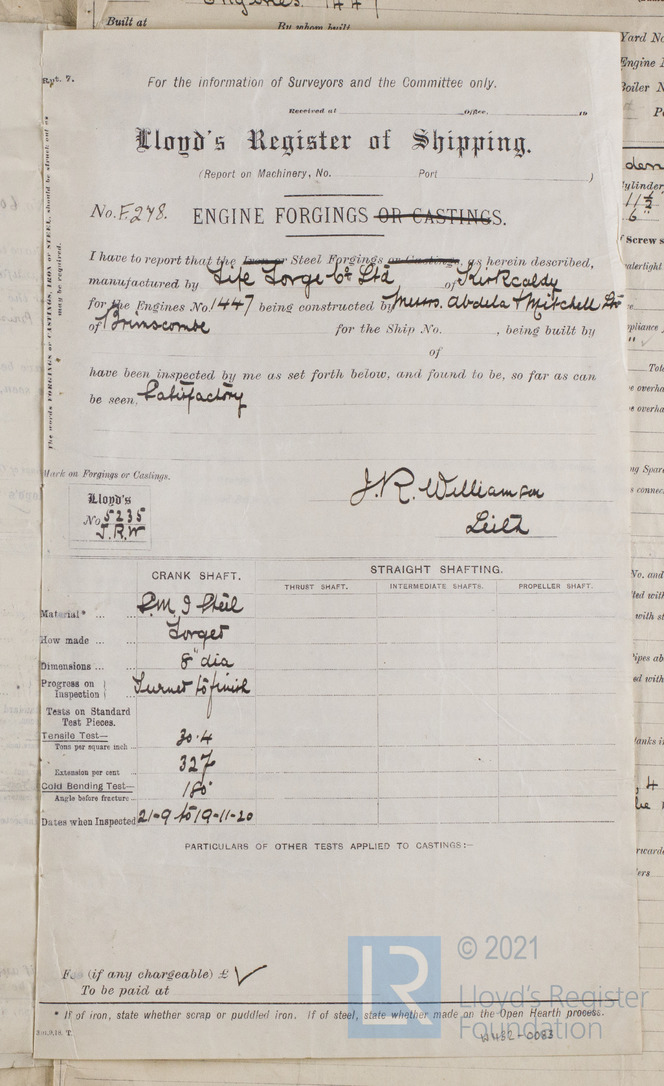 Engines. 1447
Built at
By whom built
Rpt. 7.
For the information of Surveyors and the Committee only.
Received at Office, 19
Lloyd's Register of Shipping.
(Report on Machinery, No. Port )
No. F.278. ENGINE FORGINGS OR CASTINGS.
I have to report that the Iron or Steel Forgings or Castings, as herein described,
manufactured by Fife Forge Co Ltd of Kirkcaldy
for the Engines No. 1447 being constructed by Messrs. Abdela & Mitchell Ltd
of Brinscombe for the Ship No. , being built by
of
have been inspected by me as set forth below, and found to be, so far as can
be seen, Satisfactory
The words FORGINGS or CASTINGS, IRON or STEEL, should be struck out as
may be required.
Mark on Forgings or Castings.
Lloyd's
No 5235
J.R.W
J.R. Williamson
Leith
CRANK SHAFT. STRAIGHT SHAFTING.
THRUST SHAFT. INTERMEDIATE SHAFTS. PROPELLER SHAFT.
Material* ... ... S.M.I Steel
How made ... Forged
Dimensions ... 8" dia
Progress on Inspection Turned to finish
Tests on Standard
Test Pieces.
Tensile Test—
Tons per square inch ... 30.4
Extension per cent ... 32%
Cold Bending Test—
Angle before fracture ... 180°
Dates when Inspected 21-9 to 19-11-20
PARTICULARS OF OTHER TESTS APPLIED TO CASTINGS:—
(if any chargeable) £ ✓
To be paid at
* If of iron, state whether scrap or puddled iron. If of steel, state whether made on the Open Hearth process.
LR
© 2021
Lloyd's Register
Foundation
WHS2-0083
Yard No
Engine
Boiler N
11½
6"
Screw s